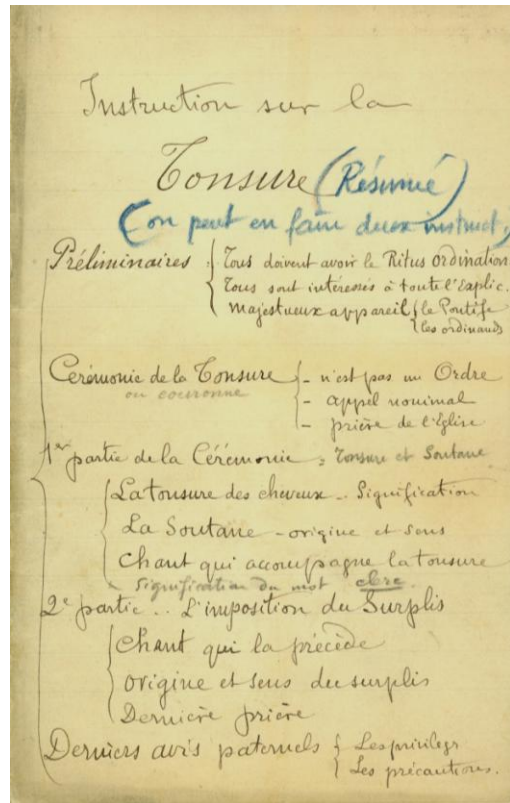 Instruction sur la
Tonsure (Résumé)
(on peut en faire deux instruct.)
Préliminaires { Tous doivent avoir le Ritus Ordination
Tous sont intéressés à toute l'Explic.
Majestueux appareil { le Pontife
les ordinands
Cérémonie de la Tonsure { - n'est pas un Ordre
ou couronne - appel nominal
- prière de l'Église
1er partie de la Cérémonie = Tonsure et Soutane
La tonsure des cheveux - Signification
La Soutane - origine et sens
Chant qui accompagne la tonsure
Signification du mot clerc.
2e partie .. L'imposition du Surplis
Chant qui la précède
Origine et sens du surplis
Dernière prière
Derniers avis paternels { Les privilèges
Les précautions.